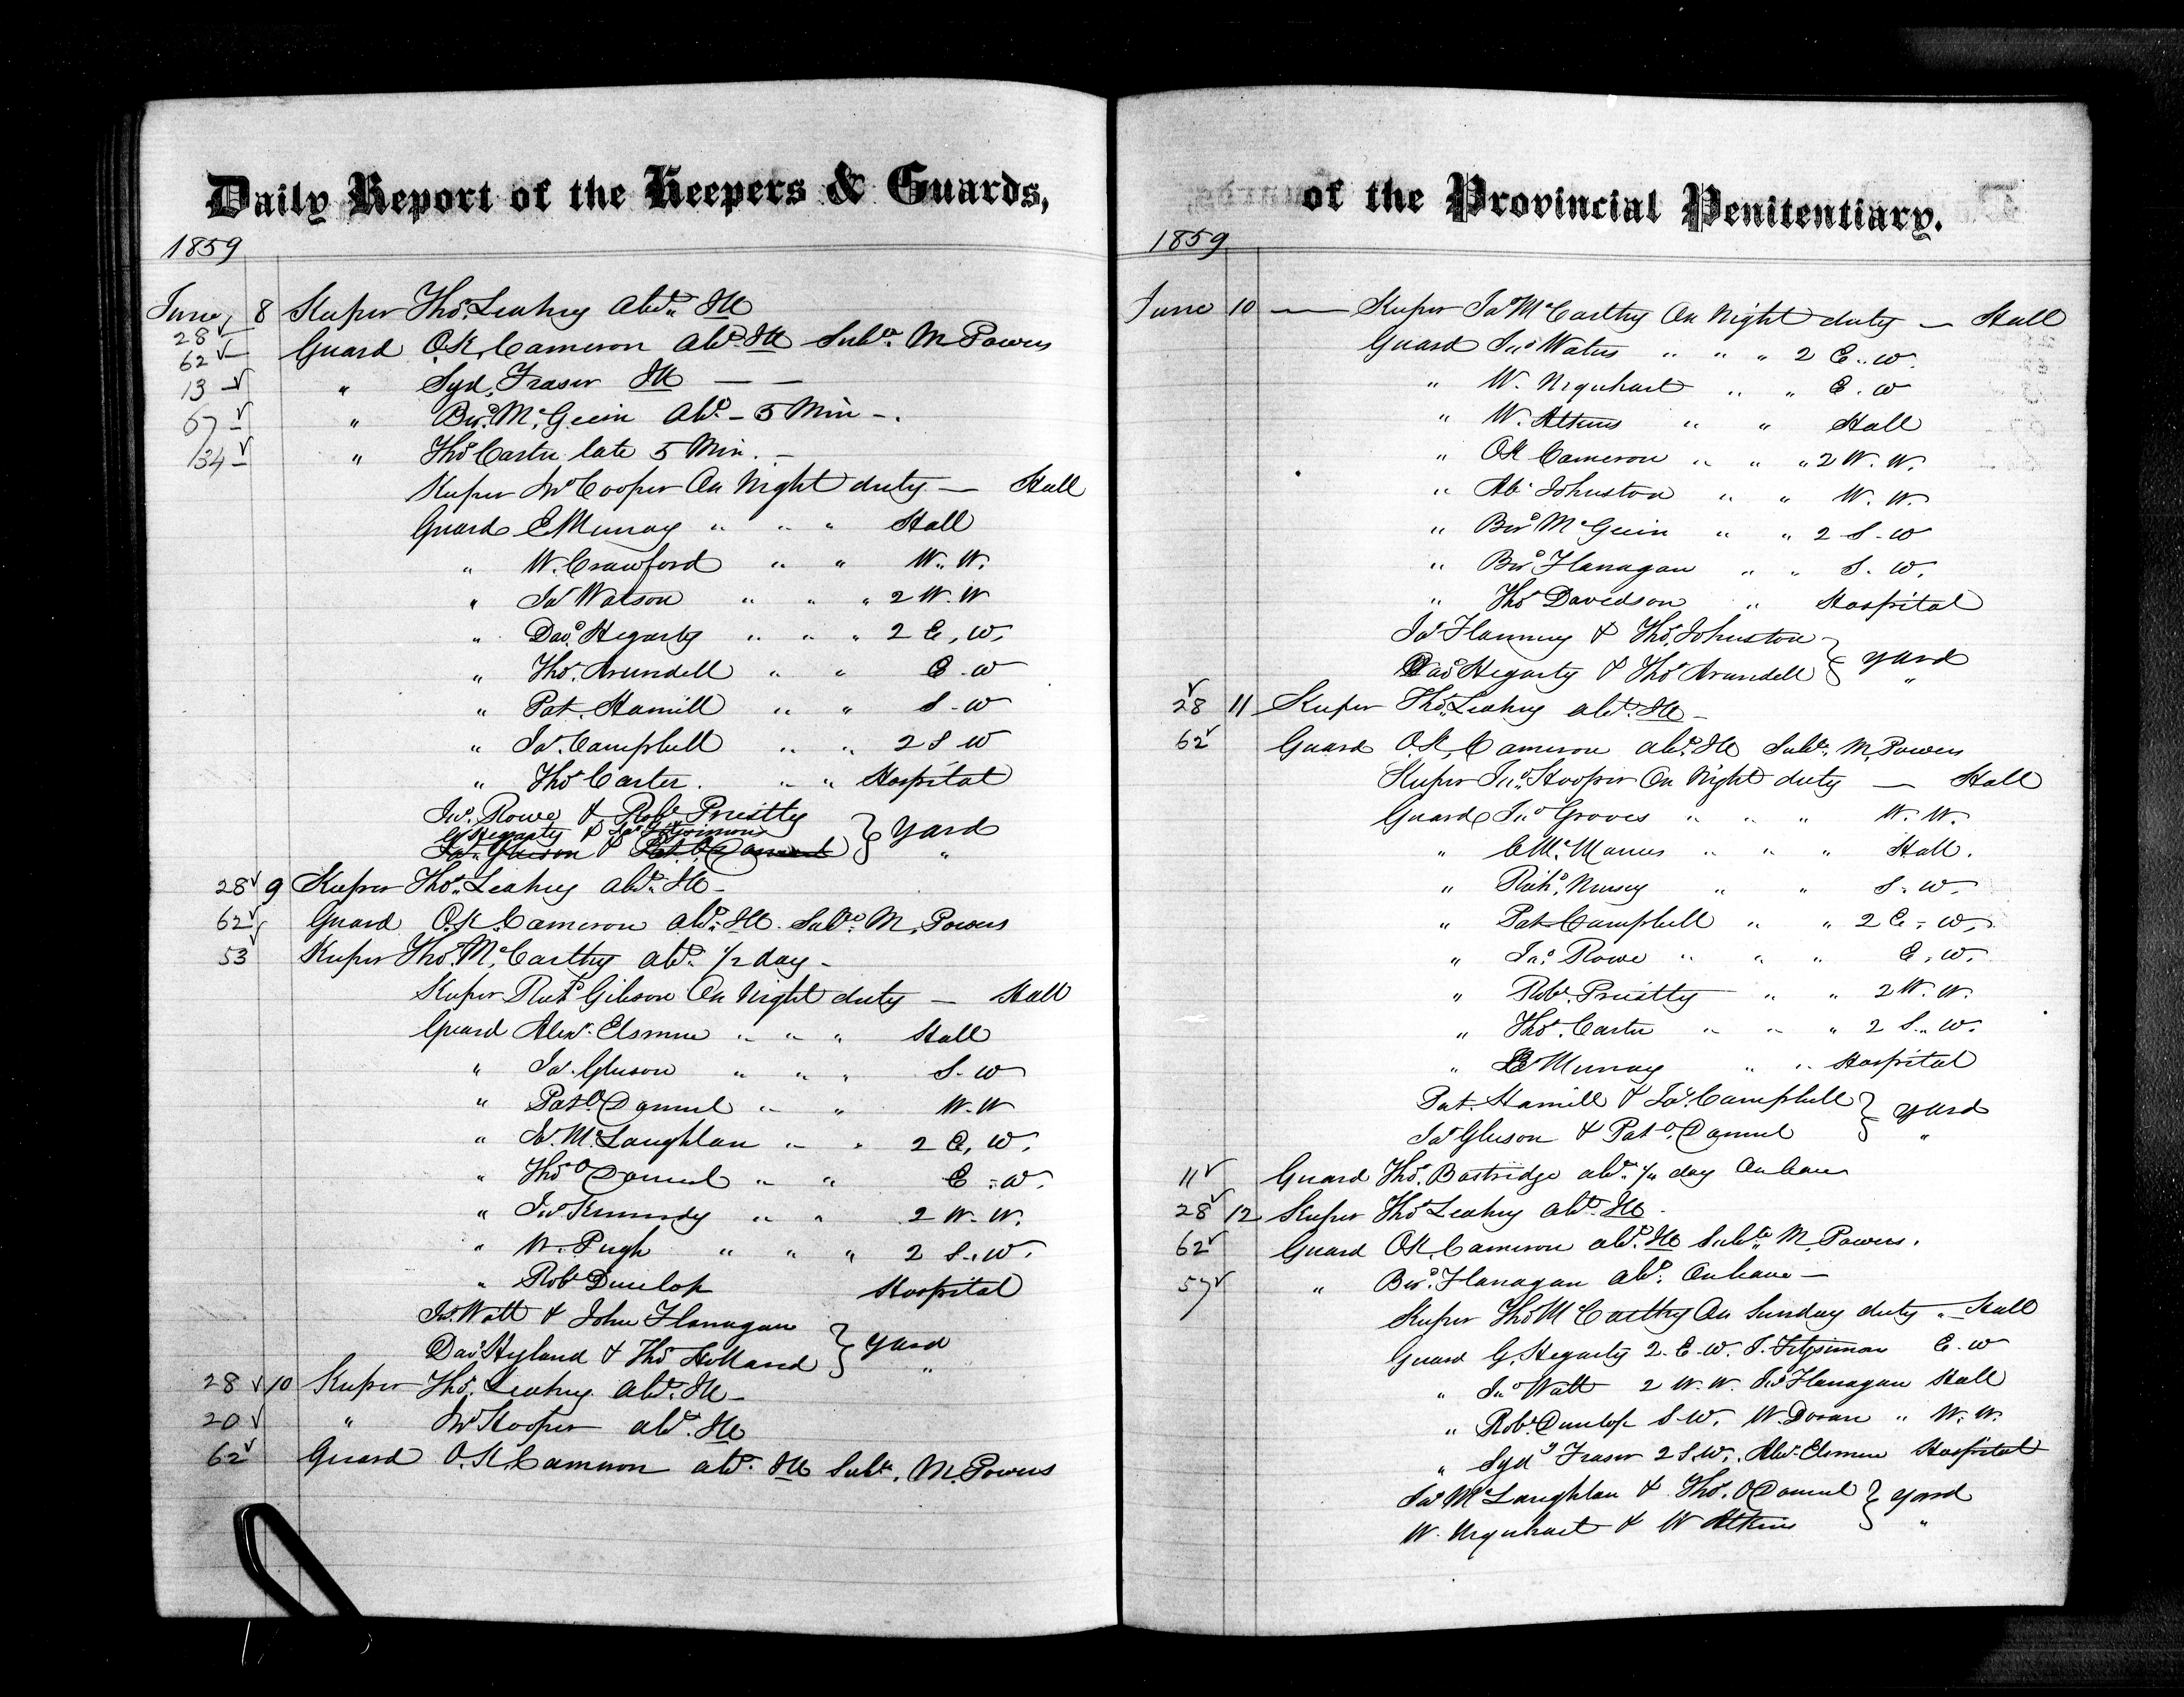 Daily Report of the Keepers & Guards,
1859
June 8 Keeper Thos. Leahey Abst. Ill
28
62 Guard O.K. Cameron Abst. Ill Subte. M. Powers
13 " Syd. Fraser Ill — —
57 " Brd. McGuin Abst. — 5 Min —.
134 " Thos Carter late 5 Min. —
Keeper Jno Cooper On Night duty — Hall
Guard E Murray " " " Hall
" W. Crawford " " W. W.
" Jas Watson " " " 2 W. W
" Davd. Hegarty " " " 2 E. W.
" Thos. Arundell " " E. W
" Pat. Hamill " " S. W
" Jas. Campbell " " 2 S W
" Thos Carter. " " Hospital
Jno. Rowe & Robt Priestly
G Hegarty & Jas Fitzsimon } Yard
Jas. Gleeson & Pat. O Connel "
28 9 Keeper Thos. Leahey abst. Ill —
62 Guard O.K. Cameron abst. Ill. Subte. M. Powers
53 Keeper Thos. McCarthy abst. 1/2 day —
Keeper Richd Gibson On Night duty — Hall
Guard Alexr. Elsmere " " " Hall
" Jas. Gleeson " " " S. W
" Pat O Connel " " W. W
" Jas. McLaughlan " " 2 E. W.
" Thos O Connel " " E. W.
" Jno Kennedy " " 2 W. W.
" W. Pugh " " " 2 S. W.
" Robt Dunlop Hospital
Jno. Watt & John Flanagan } Yard
Davd Hyland & Thos Holland "
28 10 Keeper Thos. Leahey Abst. Ill —
20 " Jno Hooper abst. Ill
62 Guard O.K. Cameron abst. Ill Subte. M. Powers
of the Provincial Penitentiary.
1859
June 10 — Keeper Jas McCarthy On Night duty — Hall
Guard Jno Waters " " " 2 E. W.
" W. Urquhart " " E. W
" W. Atkins " " Hall
" OK Cameron " " " 2 W. W.
" Ab. Johnston " " W. W.
" Brd McGuin " " 2 S. W
" Brd Flanagan " " S. W.
" Thos Davidson " Hospital
Jas Flanning & Thos. Johnston } Yard
Davd Hegarty & Thos Arundell "
28 11 Keeper Thos. Leahey abst. Ill —
62 Guard O.K. Cameron abst. Ill Subte. M. Powers
Keeper Jno. Hooper On Night duty — Hall
Guard Jno Groves " " " W. W.
" C McManus " " " Hall.
" Richd. Nursey " " S. W.
" Pat Campbell " " 2 E. W.
" Jno. Rowe " " " E. W.
" Robt. Priestly " " 2 W. W.
" Thos. Carter " " " 2 S. W.
" E Murray " " Hospital
Pat. Hamill & Jas. Campbell } Yard
Jas Gleeson & Pat O. Connel "
11 Guard Thos. Bostridge abst. 1/4 day On leave
28 12 Keeper Thos Leahey Abst. Ill.
62 Guard OK. Cameron abst. Ill Subte M. Powers.
57 " Brd. Flanagan Abst. On leave —
Keeper Thos McCarthy On Sunday duty — Hall
Guard G. Hegarty 2. E. W. J. Fitzsimon E. W
" Jno Watt 2 W. W. Jno Flanagan Hall
" Robt. Dunlop S. W. W. Doran " W. W.
" Sydy Fraser 2 S. W. Alexr. Elsmere Hospital
Jas McLaughlan & Thos. O Connel } Yard
W. Urquhart & W Atkins "